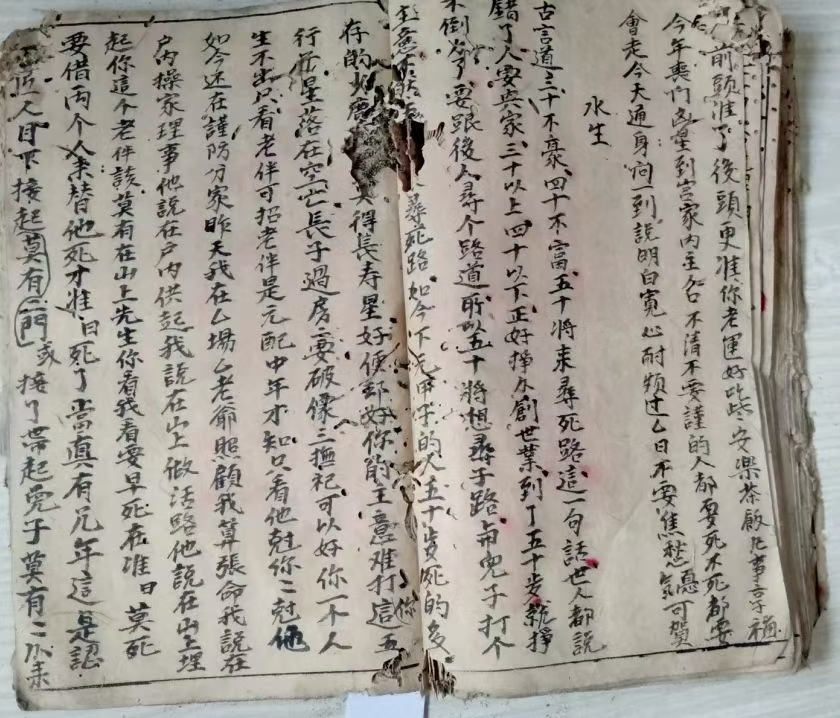 前頭准了後頭更准你老運好些安樂茶飯凡事言子福
今年喪門凶星到宮家內主各不清不要謹的人都要死不死都要
會走今天通身向一到說明白寬心耐煩过厶日不要焦愁憂氣可賀
水生
古言道三十不豪四十不富五十將來尋死路這一句話世人都說
錯了人要興家三十以上四十以下正好掙𠆤創世業到了五十步就掙
不倒分了要跟後人尋个路道所以五十將想尋子路與兒子打个
主意 尋死路如今下元甲子的人五十岁死的多
存的少 莫得長寿星好便却好你的主意难打這你五
行 星落在空亡長子過房要破像三撫祀可以好你一个人
生不出只看老伴可招老伴是元配中年才知只看他尅你二尅他
如今还在謹防分家昨天我在厶場厶老爺照顧我算張命我說在
户内操家理事他說在户内供起我說在山上做活路他說在山上埋
起你這个老伴該莫有在山上先生你看我看要早死在准曰莫死
要借两个人來替他死才准曰死了當真有兄年這是認
人目下接起莫有二門或接了帶起兒子莫有二 來